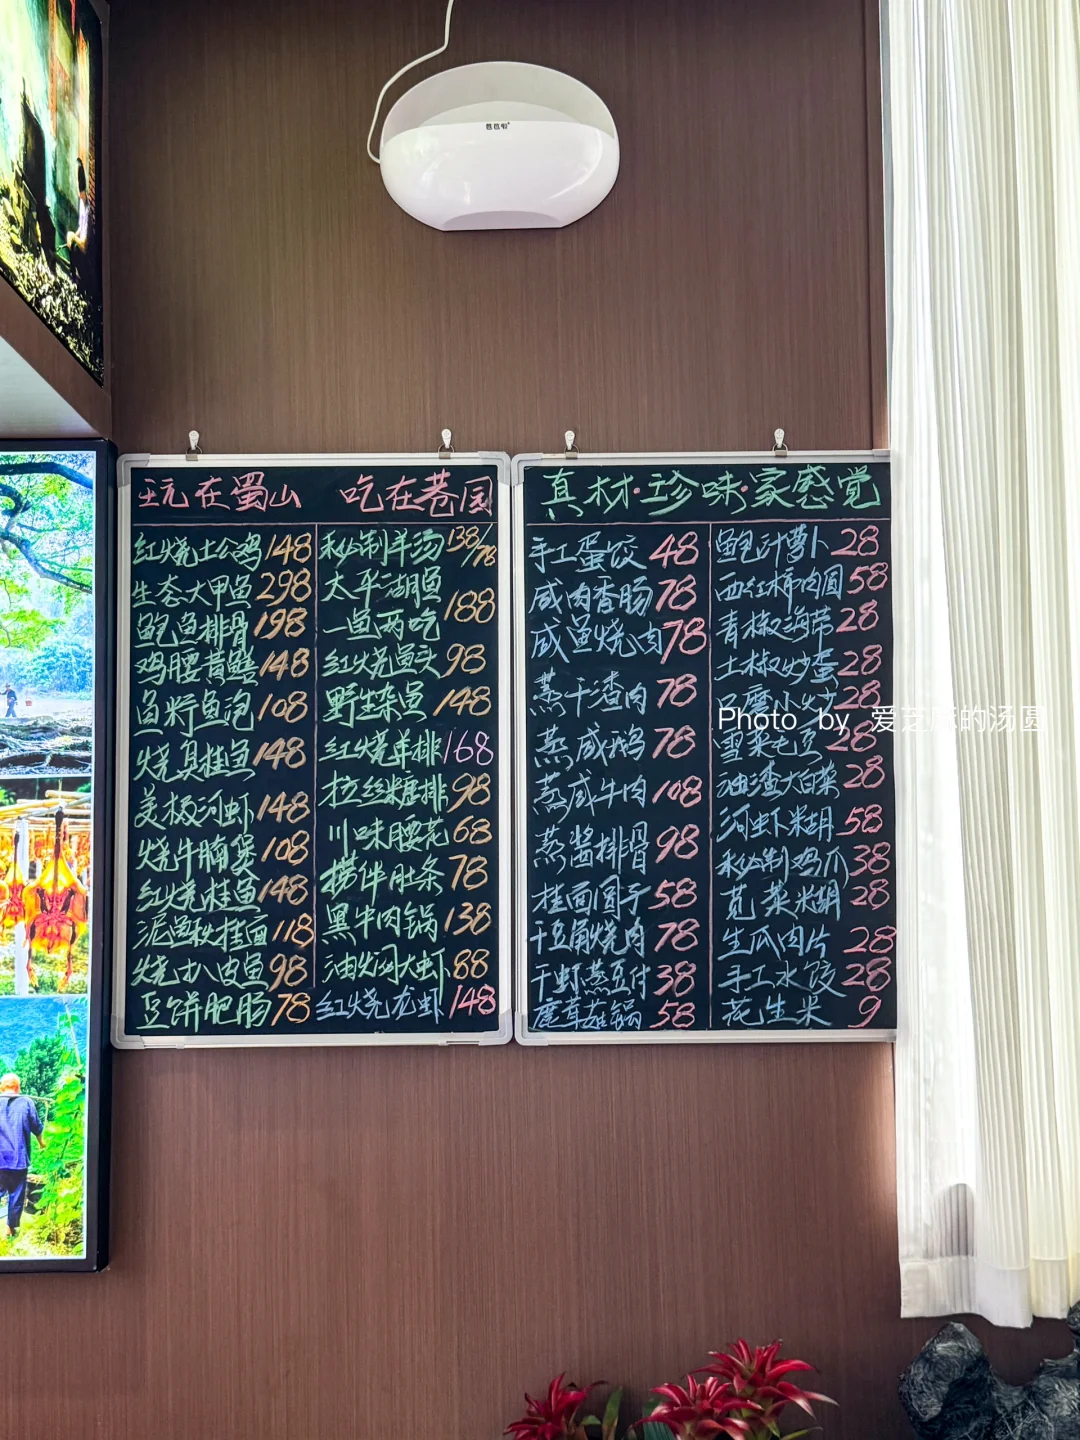 玩在蜀山 吃在巷园
红烧土公鸡148
生态大甲鱼298
鲍鱼排骨198
鸡腰黄鳝148
鱼籽鱼泡108
烧臭桂鱼148
美极河虾148
烧牛腩煲108
红烧桂鱼148
泥鳅挂面118
烧扒皮鱼98
豆饼肥肠78
秘制羊汤138/78
太平湖鱼
一鱼两吃188
红烧鱼头98
野生杂鱼148
红烧羊排168
拉丝糖排98
川味腰花68
捞伴肚条78
黑牛肉锅138
油焖大虾88
红烧龙虾148
真材·珍味·家感觉
手工蛋饺48
咸肉香肠78
咸鱼烧肉78
蒸干渣肉78
蒸咸鹅78
蒸咸牛肉108
蒸酱排骨98
挂面圆子58
干豆角烧肉78
干虾蒸豆付38
鹿茸菇锅58
鲍汁萝卜28
西红柿肉圆58
青椒海带28
土椒炒蛋28
石磨小
28
雪菜毛豆28
油渣大白菜28
河虾米糊58
秘制鸡爪38
苋菜米糊28
生瓜肉片28
手工水饺28
花生米9
Photo by 爱芝
的汤圆